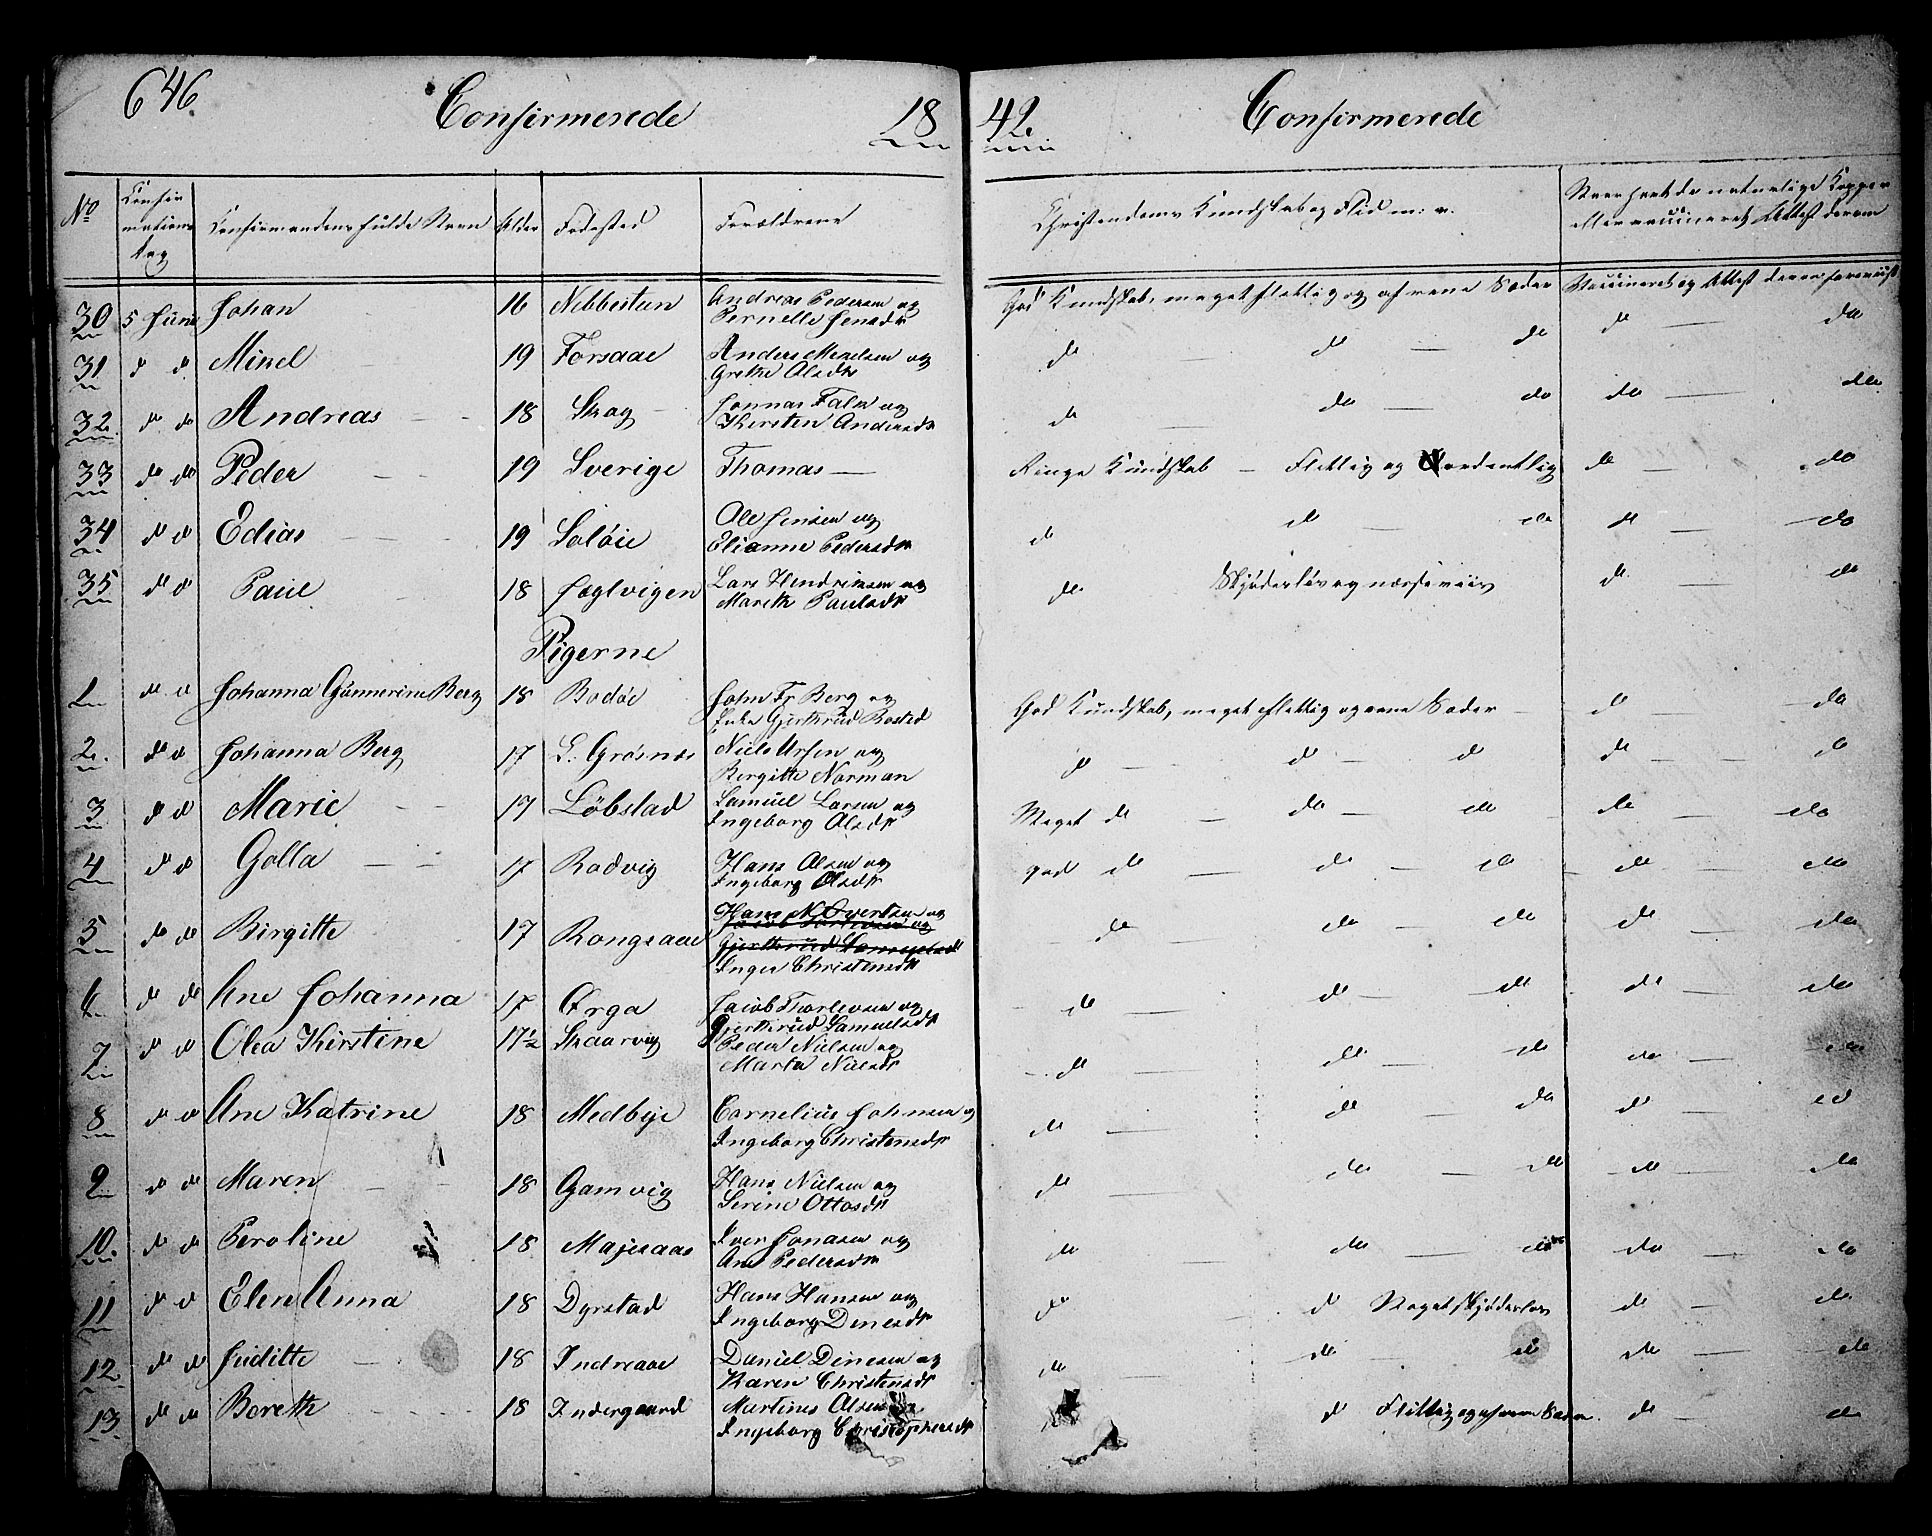 646
Confirmerede 18 42 Confirmerede
No Confirmations Dag Confirmandens fulde Navn Alder Fødested Forældrene Christendoms Kundskab og Flid m: v. Naar havt de naturlige Kopper eller vaccineret, Attest derom
30 5 Juni Johan 16 Nebbestun Andreas Pedersen og Pernelle Jensdr God Kundskab, meget flittig og af rene Sæder Vaccineret og Attest derom foreviist
31 d d Minel 19 Forsaae Anders Menelsen og Grethe Olsdr do — do — do do — do
32 do do Andreas 18 Skog Jonnas Falk og Kirsten Andersdr do — do — do do — do
33 do do Peder 19 Sverige Thomas — Ringe Kundskab — Flittig og Ordentlig do — do
34 do d Edias 19 Soløie Ole Jensen og Elianne Pedersdr do do — do do — do
35 do d Paul 18 Fogelvigen Lars Hendriksen og Marith Paulsdr do Skjødesløs og næseviis do — do
Pigerne
1 do d Johanna Gunnerine Berg 18 Bodøe John Fr Berg og Gjertrud Bested God Kundskab, meget flittig og rene Sæder do — do
2 do d Johanna Berg 17 L. Grøsnæs Niels og Bergitte Norman do — do — d do — do
3 do d Marie 17 Løbstad Samuel Larsen og Ingeborg Olsdr Meget do — do — do do — do
4 do d Golla 17 Rodvig Hans Olsen og Ingeborg Olsdr god do — do — do do — do
5 do do Birgitte 17 Rongsaae Hans N Overtsen og Jacob Torlevsen og Gjertrud Samuelsdr Inger Christensdr do — do — do do — do
6 do do Ane Johanna 17 Ørga Jacob Torlevsen og Gjertrud Samuelsdr do — do — do do — do
7 do d Olea Kirstine 17½ Skaarvig Peder Nielsen og Marta Nielsdr do — do — do do — do
8 do d Ane Katrine 18 Medbye Cornelius Johnsen og Ingeborg Christensdr do — do — do do — do
9 do do Maren 18 Gamvig Hans Nielsen og Serine Ottosdr do — do — do do — do
10 do do Peroline 18 Majesaas Iver Jonasen og Ane Pedersdr do do — do do — do
11 do d Elen Anna 18 Dyrstad Hans Hansen og Ingeborg Dinesdr do d Meget skjødesløs do — do
12 do do Juditte 18 Indreaae Daniel Dinesen og Karen Christensdr do — do — do do — do
13 do do Bereth 18 Indergaard Martines Olsen og Ingeborg Christophersdr d Flittig og af rene Sæder do — do